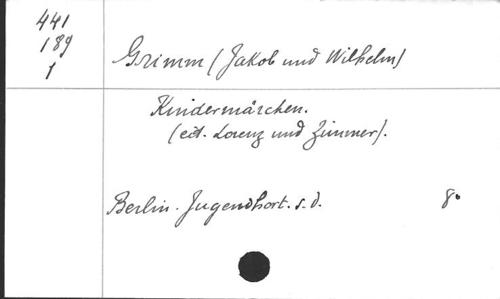 441
189
1
Grimm (Jakob und Wilhelm)
Kindermärchen.
(ed. Lorenz und Zimmer).
Berlin. Jugendhort. s. d. 8°